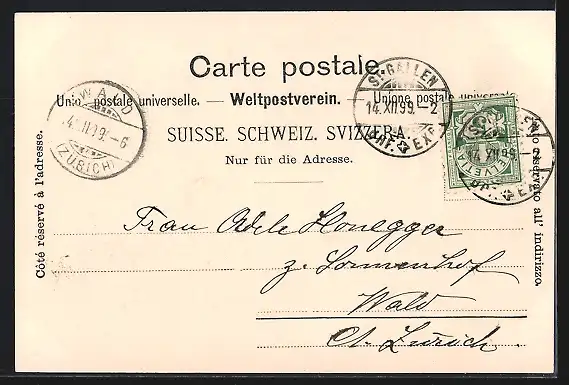 Carte postale.
Union postale universelle. — Weltpostverein. — Unione postale universale.
SUISSE. SCHWEIZ. SVIZZERA.
Nur für die Adresse.
Côté réservé à l'adresse.
Lato riservato all' indirizzo.
WALD
14.XII.99.-6
(ZÜRICH)
ST. GALLEN
14.XII.99.-2
BRF. EXP.
ST. GALLEN
14.XII.99.-2
BRF. EXP.
HELVETIA
Frau Adele Honegger
z. Sonnenhof
Wald
Ct. Zürich.